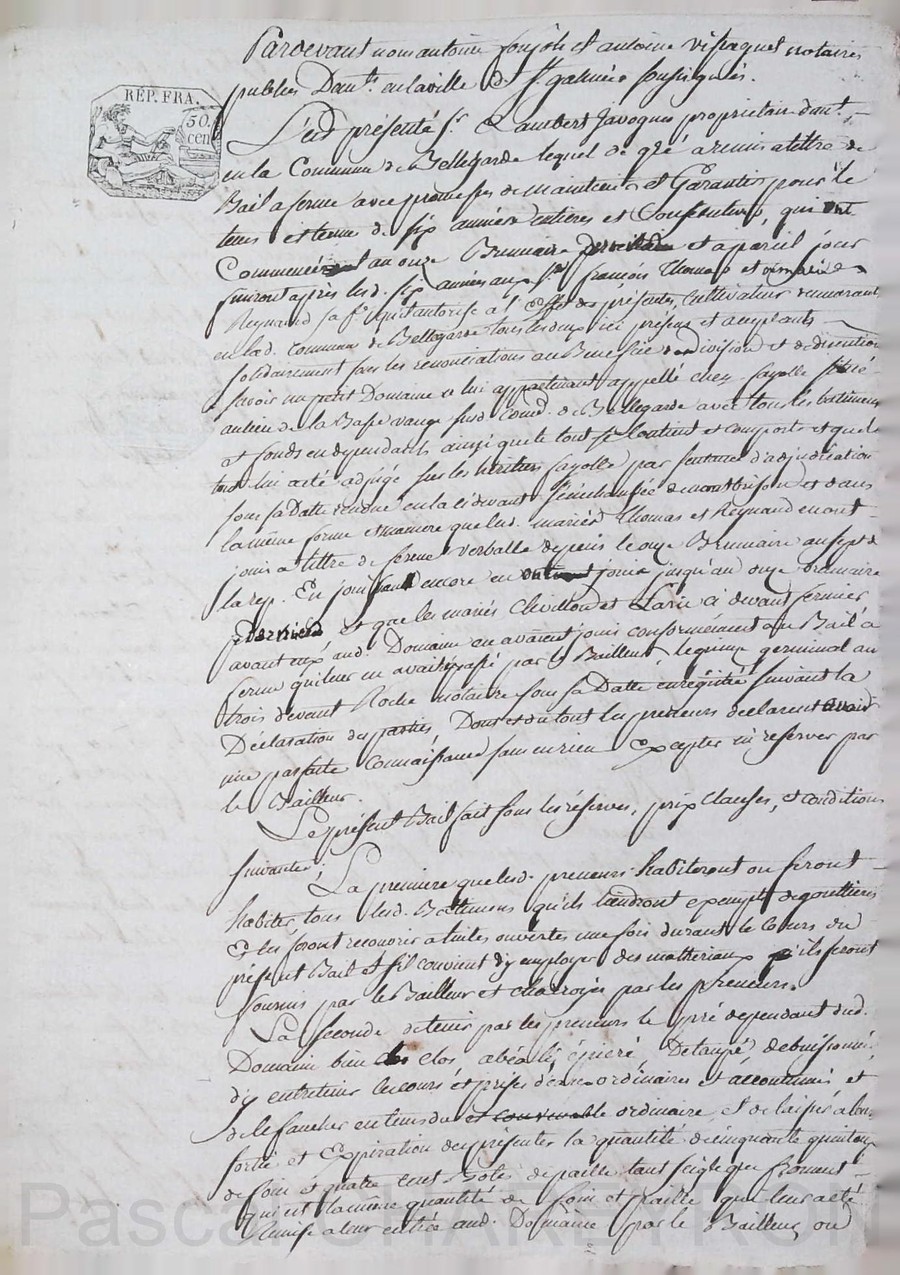 RÉP. FRA.
50.
cen
Pardevant nous antoine et antoine vispaquel notaires
publics en la ville de St galmier soussignés.
S'est présenté Sr Lambert Javogues proprietaire
en la Commune de Bellegarde lequel de gré a remis a tittre de
Bail a ferme avec promesses de maintenir et Garantir pour le
tems et terme de six années entieres et Consecutives, qui ont
Commencé l'an onze Brumaire et a pareil jour
finiront après lesd. six années aux Srs françois Thomas et
Reynaud sa fe qu'il autorise a l'Effet des présentes, cultivateur demeurant
en lad. Commune de Bellegarde tous les deux ici présens et acceptants
solidairement sous les renonciations au Benefice de division et de discution
savoir un petit Domaine a lui appartenant appellé chez fayolle situé
au lieu de la Basse vauge susd. Comd. de Bellegarde avec tous les batimens
et fonds en dependants ainsi que le tout se Contient et comporte et quel
tout lui a été adjugé sur les héritiers fayolle par sentance d'adjudication
sous sa Datte rendue en la cidevant Sénéchaussée de montbrison et dans
la même forme et maniere que lesd. mariés Thomas et Reynaud en ont
joui a tittre de ferme verballe depuis le onze Brumaire an sept de
la rep. En jouissant encore en jusqu'au onze brumaire
dernier et que les mariés Chevillon et Larue ci devant fermier
avant eux aud. Domaine en avaient joui conformément au Bail a
ferme qu'il leur en avait passé par le Bailleur, le germinal an
trois devant Roche notaire sous sa Datte enregistré suivant la
Déclaration des parties, Dont et du tout les preneurs declarent avoir
une parfaite Connaissance sans en rien Excepter ni reserver par
le Bailleur.
Le présent Bail fait sous les réserves, prix clauses, et conditions
suivantes;
La premiere que lesd. preneurs habiteront ou feront
habiter tous lesd. Battimens qu'ils tiendront exempts de gouttieres
Et les feront recouvrir a tuiles ouvertes une fois durant le Cours du
présent Bail et s'il convient d'y employer des matheriaux ils seront
fournis par le Bailleur et charroyés par les preneurs.
La seconde de tenir par les preneurs le pré dependant dud.
Domaine bien clos épierré, Detaupé, debuissonné
d'y entretenir les cours et prises d'eau ordinaires et accoutumés et
de le faucher en tems du et convenable ordinaire, et de laisser a leur
sortie et Expiration des présentes la quantité de cinquante quintaux
de foin et quatre cent Bottes de paille tant seigle que froment
qui est la même quantité de foin et paille que leur a été
Remise a leur entrée aud. Domaine par le Bailleur, ou
Pascal CHARETRON